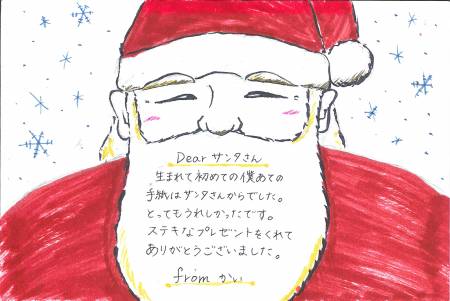 Dear サンタさん
生まれて初めての僕あての
手紙はサンタさんからでした。
とってもうれしかったです。
ステキなプレゼントをくれて
ありがとうございました。
from かい